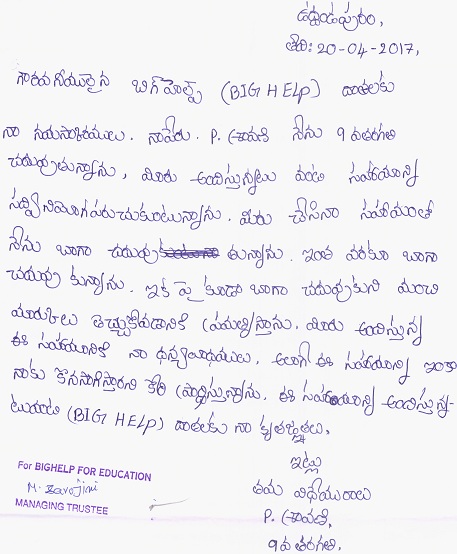 ఉద్దండపురం,
తేది: 20-04-2017,
గౌరవనీయులైన బిగ్‌హెల్ప్ (BIG HELP) దాతలకు
నా నమస్కారములు. నాపేరు. P. శ్రావణి నేను 9 వతరగతి
చదువుతున్నాను, మీరు అందిస్తున్నటు వంటి సహాయాన్ని
సద్వినియోగపరుచుకుంటున్నాను. మీరు చేసినా సహాయంతో
నేను బాగా చదువు తున్నాను. ఇంత వరకూ బాగా
చదువు కున్నాను. ఇక పై కూడా బాగా చదువుకుని మంచి
మార్కులు తెచ్చుకోవడానికి ప్రయత్నిస్తాను. మీరు అందిస్తున్న
ఈ సహాయానికి నా ధన్యవాదములు, అలాగే ఈ సహాయాన్ని ఇంకా
నాకు కొనసాగిస్తారని కోరి ప్రార్థిస్తున్నాను. ఈ సహాయాన్ని అందిస్తున్న-
టువంటి (BIG HELP) దాతలకు నా కృతజ్ఞతలు,
ఇట్లు
తమ విధేయురాలు
P. శ్రావణి,
9వ తరగతి.
For BIGHELP FOR EDUCATION
M. Sarojini
MANAGING TRUSTEE